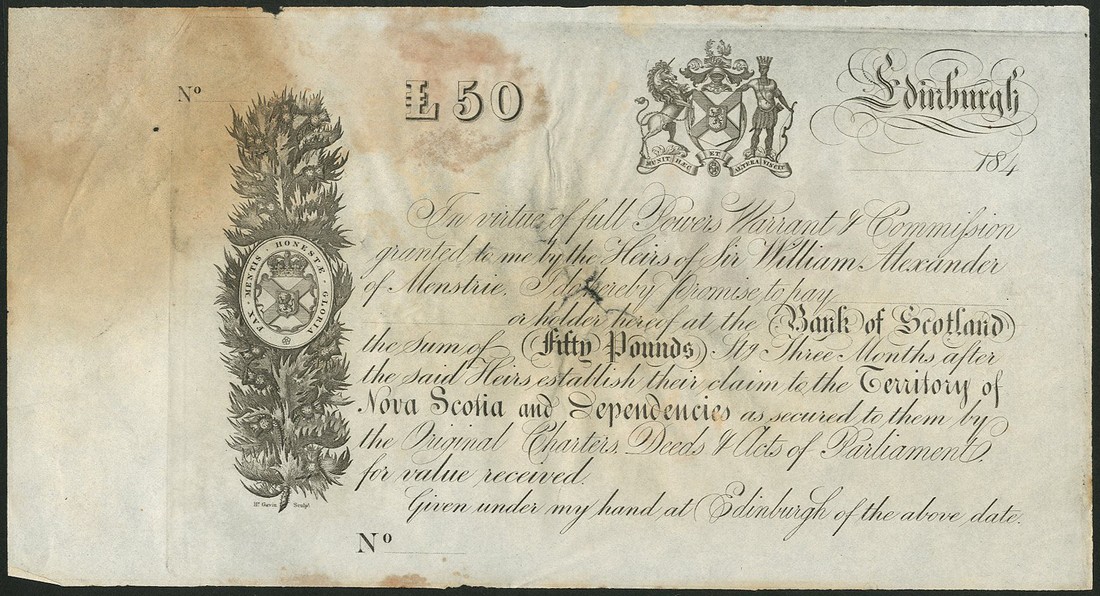 No
£50
MUNIT HÆC ET ALTERA VINCIT
Edinburgh
184
In virtue of full Powers Warrant & Commission
granted to me by the Heirs of Sir William Alexander
of Menstrie. I do hereby promise to pay
or holder hereof at the Bank of Scotland
the Sum of Fifty Pounds Stg Three Months after
the said Heirs establish their claim to the Territory of
Nova Scotia and Dependencies as secured to them by
the Original Charters, Deeds & Acts of Parliament
for value received.
Given under my hand at Edinburgh of the above date.
No
FAX · MENTIS · HONESTÆ · GLORIA
Hr. Gavin Sculpt.